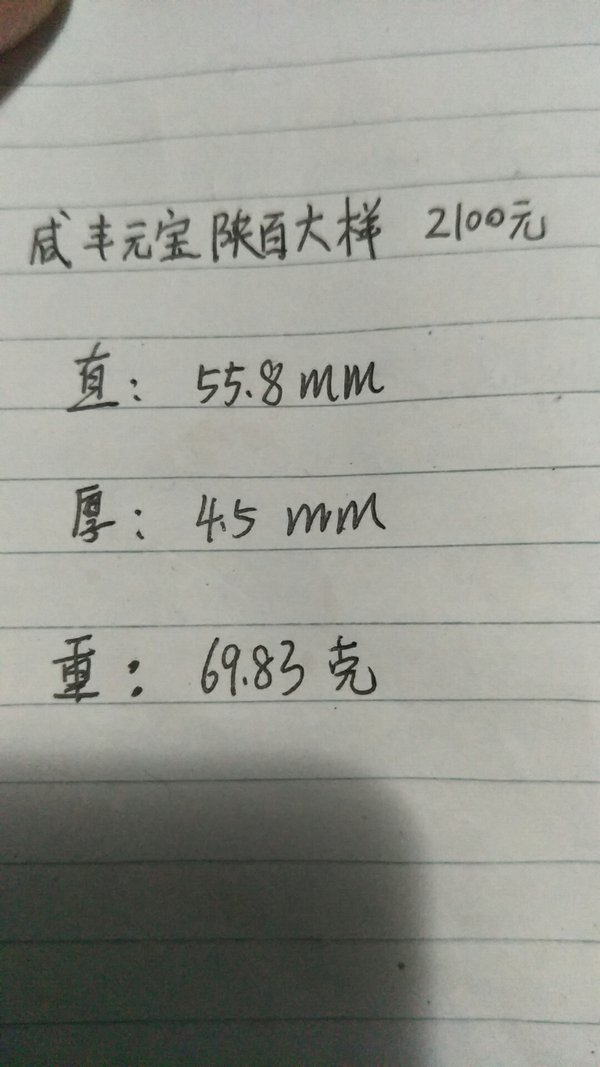 咸丰元宝陕百大样 2100元
直: 55.8mm
厚: 4.5 mm
重: 69.83克